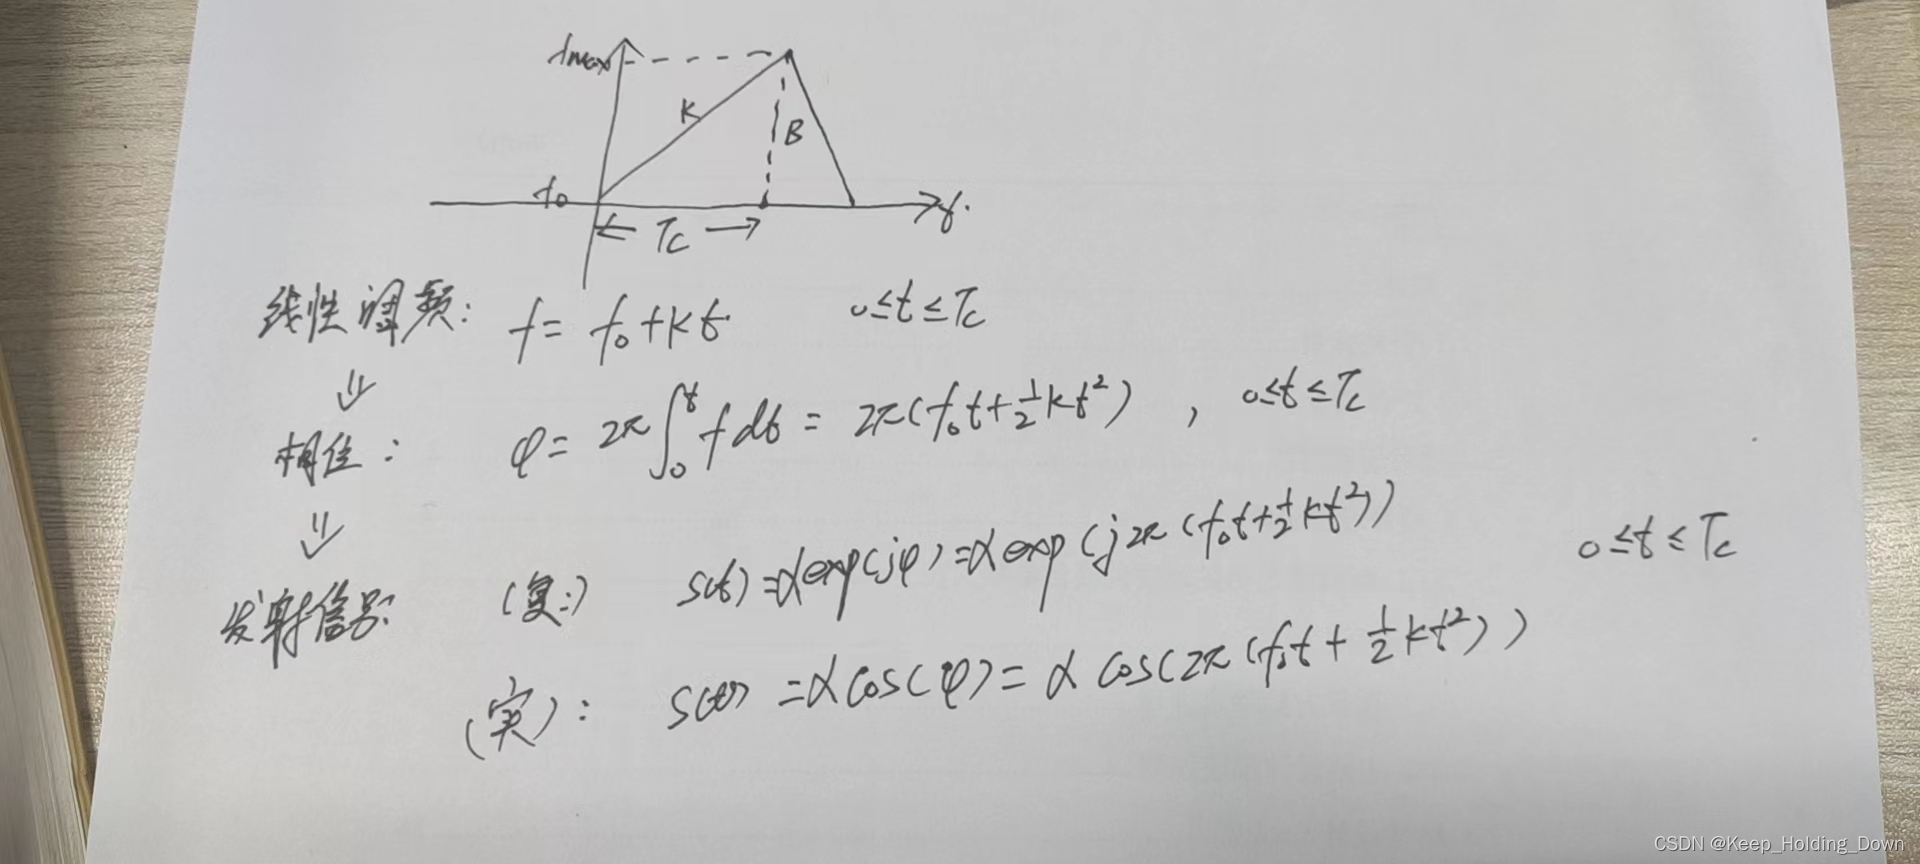 fmax
K
B
f₀
t.
Tc
线性调频: f = f₀+kt 0≤t≤Tc
⇓
相位: φ = 2π∫₀ᵗ f dt = 2π(f₀t+½kt²) , 0≤t≤Tc
⇓
发射信号: (复:) s(t) = α exp(jφ) = α exp(j2π(f₀t+½kt²)) 0≤t≤Tc
(实): s(t) = α cos(φ) = α cos(2π(f₀t+½kt²))
CSDN @Keep_Holding_Down